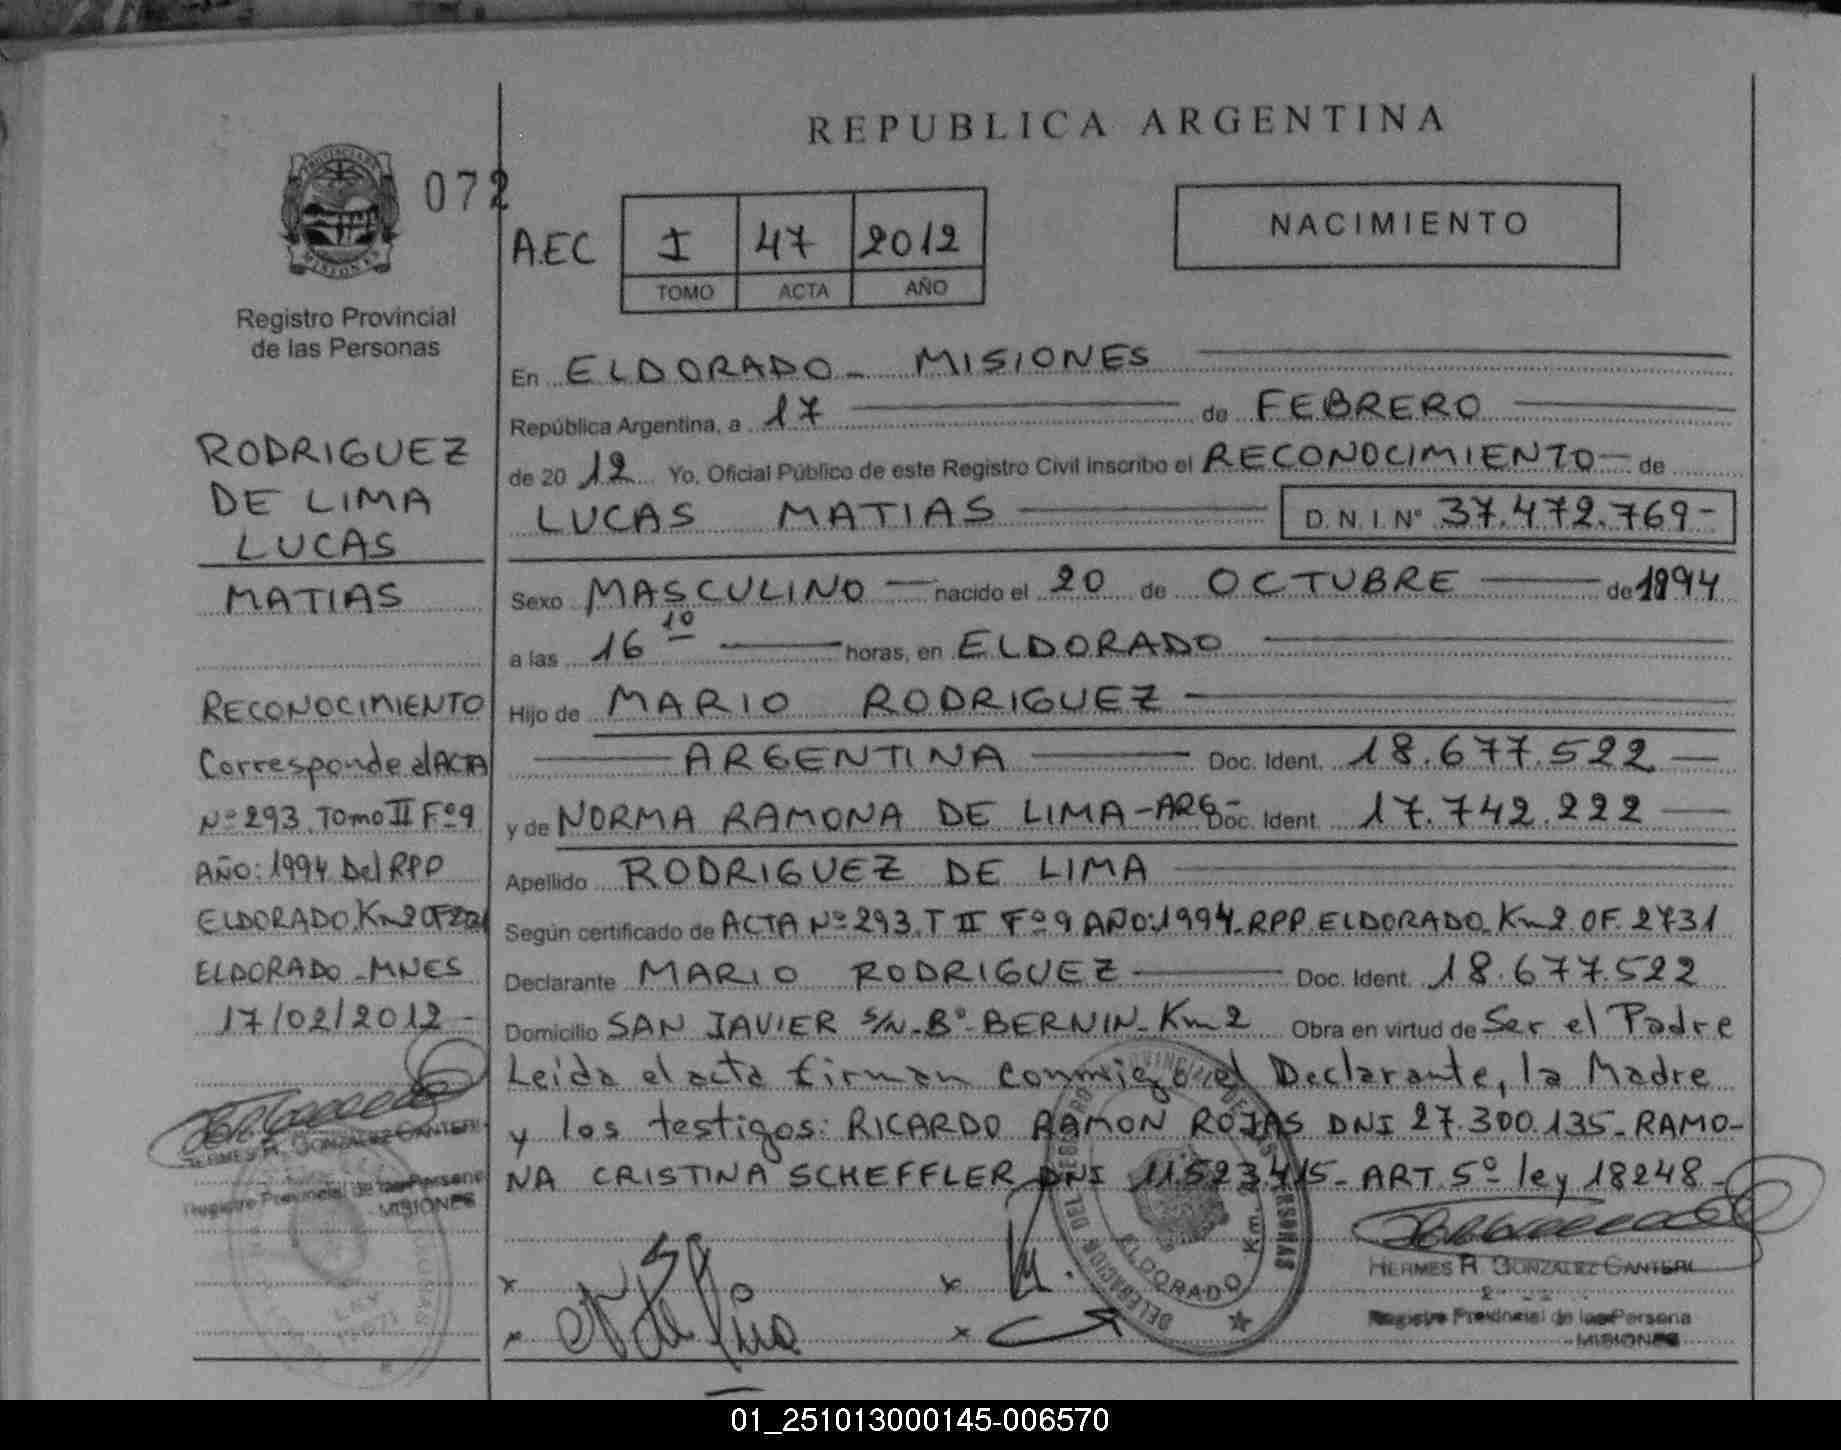 REPUBLICA ARGENTINA
PROVINCIA DE
MISIONES
072
AEC
I 47 2012
TOMO ACTA AÑO
NACIMIENTO
Registro Provincial
de las Personas
RODRIGUEZ
DE LIMA
LUCAS
MATIAS
RECONOCIMIENTO
Corresponde al ACTA
Nº 293. Tomo II Fº 9
AÑO: 1994 Del RPP
ELDORADO. Km 2 OF
ELDORADO - MNES
17/02/2012 -
HERMES R. GONZALEZ CANTERI
Registro Provincial de las Persona
- MISIONES
LEY
En ELDORADO - MISIONES
República Argentina, a 17 de FEBRERO
de 20 12 Yo, Oficial Público de este Registro Civil inscribo el RECONOCIMIENTO de
LUCAS MATIAS D.N.I. Nº 37.472.769-
Sexo MASCULINO nacido el 20 de OCTUBRE de 1994
a las 16 10 horas, en ELDORADO
Hijo de MARIO RODRIGUEZ
ARGENTINA Doc. Ident. 18.677.522
y de NORMA RAMONA DE LIMA - ARG- Doc. Ident. 17.742.222
Apellido RODRIGUEZ DE LIMA
Según certificado de ACTA Nº 293. T II Fº 9 AÑO: 1994. RPP. ELDORADO. Km 2. OF. 2731
Declarante MARIO RODRIGUEZ Doc. Ident. 18.677.522
Domicilio SAN JAVIER S/N - Bº - BERNIN - Km 2 Obra en virtud de Ser el Padre
Leida el acta firman conmigo el Declarante, la Madre
y los testigos: RICARDO RAMON ROJAS DNI 27.300.135 - RAMO-
NA CRISTINA SCHEFFLER DNI 11.523.415 - ART. 5º ley 18248 -
DELEGACION DEL REGISTRO PROVINCIAL DE LAS PERSONAS
ELDORADO Km. 2
HERMES R. GONZALEZ CANTERI
Registro Provincial de las Persona
- MISIONES
01_251013000145-006570